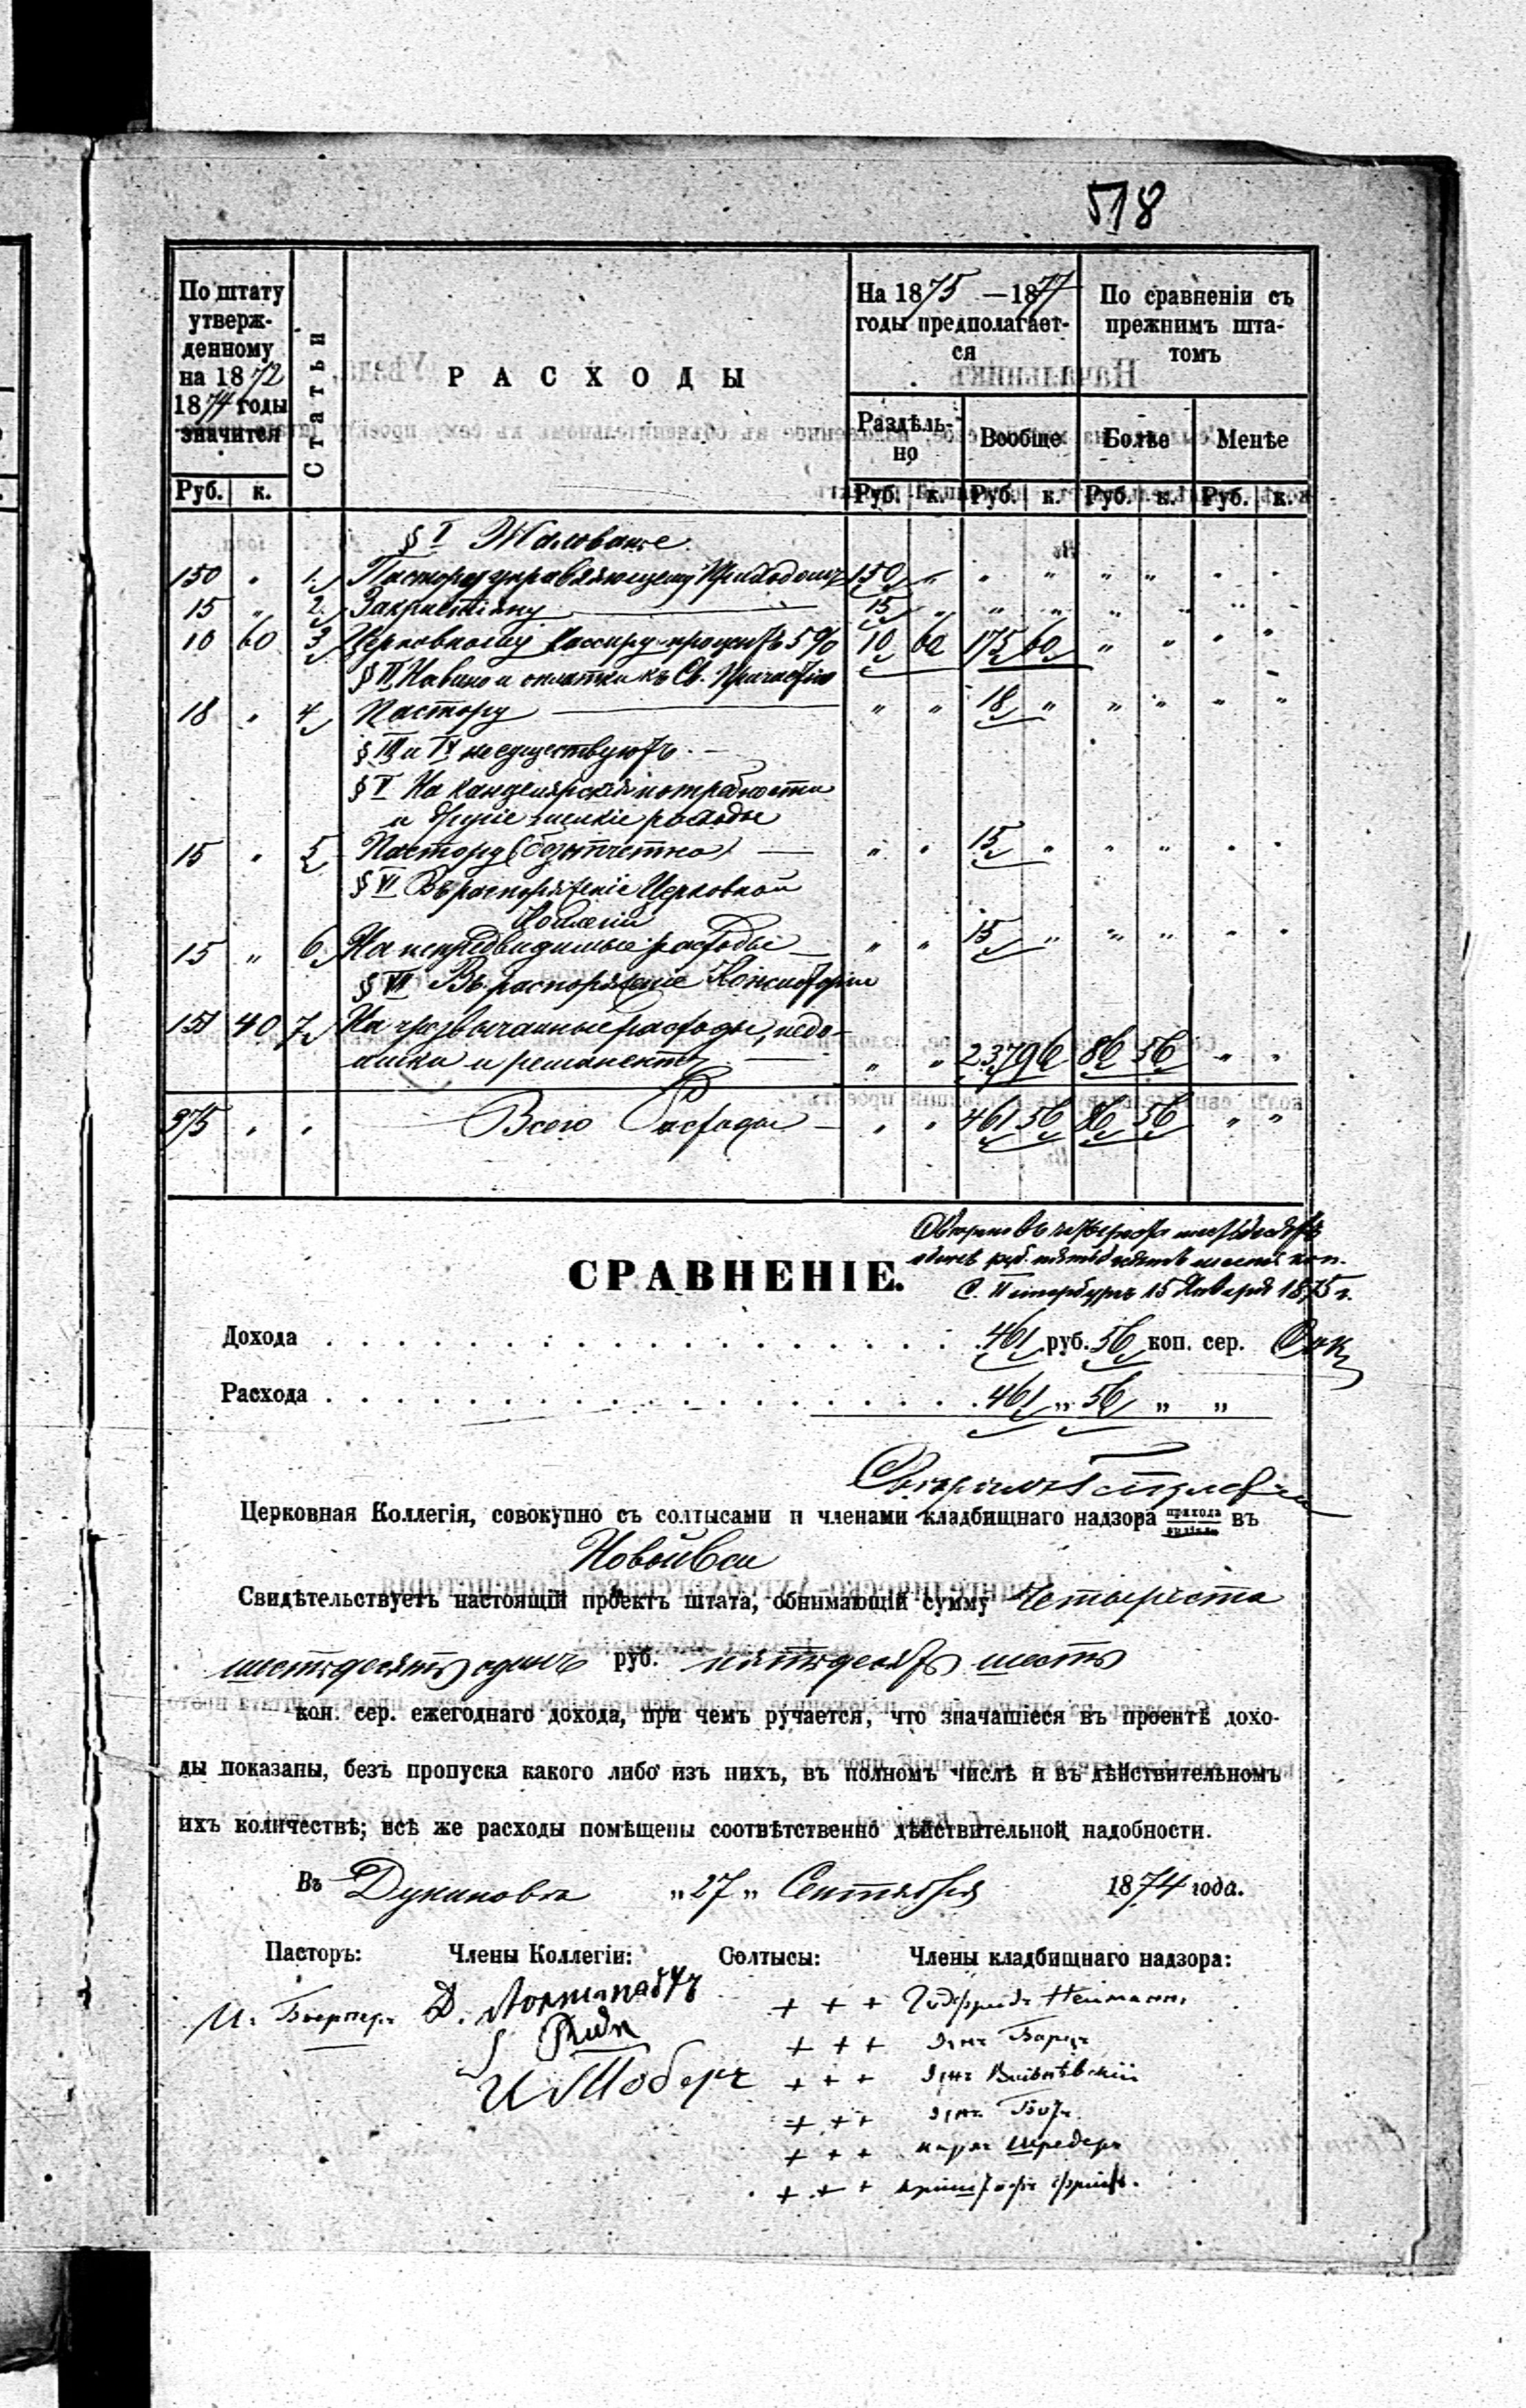 518
По штату
утверж-
денному
на 1872
1874 годы
значится
Статьи
РАСХОДЫ
На 1875 —1877
годы предполагает-
ся
По сравненіи съ
прежнимъ шта-
томъ
Раздѣль-
но
Вообще
Болѣе
Менѣе
Руб. к. Руб. к. Руб. к. Руб. к. Руб. к.
§ I Жалованье.
150 „ 1. Пастору управляющему Приходомъ 150 „ „ „ „ „ „ „
15 „ 2. Закристіяну 15 „ „ „ „ „ „ „
10 60 3 Церковному кассиру процентъ 5% 10 60 175 60 „ „ „ „
§ II На вино и оплатки къ Св. Причастію
18 „ 4 Пастору „ „ 18 „ „ „ „ „
§ III и IV не существуютъ.
§ V На канцелярскія потребности
и другіе мелкіе расходы
15 „ 5 Пастору (безотчетно) „ „ 15 „ „ „ „ „
§ VI Въ распоряженіе Церковной
Коллегіи
15 „ 6 На непредвидимые расходы „ „ 15 „ „ „ „ „
§ VII Въ распоряженіе Консисторіи
151 40 7 На чрезвычайные расходы, недо-
имки и ремонентъ „ „ 237 96 86 56 „ „
375 „ „ Всего Расходы „ „ 461 56 86 56 „ „
СРАВНЕНІЕ.
четыреста шестьдесятъ
одинъ руб. пятьдесятъ шесть коп.
С. Петербургъ 15 Января 1875 г.
Дохода 461 руб. 56 коп. сер.
Расхода 461 „ 56 „ „
Церковная Коллегія, совокупно съ солтысами и членами кладбищнаго надзора прихода въ
Новойвси
Свидѣтельствуетъ настоящій проектъ штата, обнимающій сумму Четыреста
шестьдесятъ одинъ руб. пятьдесятъ шесть
коп. сер. ежегоднаго дохода, при чемъ ручается, что значащіеся въ проектѣ дохо-
ды показаны, безъ пропуска какого либо изъ нихъ, въ полномъ числѣ и въ дѣйствительномъ
ихъ количествѣ; всѣ же расходы помѣщены соотвѣтственно дѣйствительной надобности.
Въ „27„ Сентября 1874 года.
Пасторъ: Члены Коллегіи: Солтысы: Члены кладбищнаго надзора:
И. Бьернеръ Д. + + + Нейманъ
+ + +
+ + +
+ + +
+ + + Шредеръ
+ + +